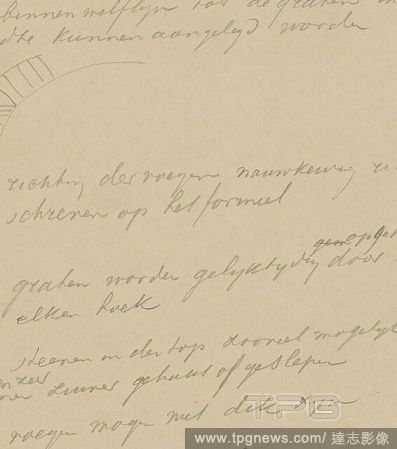 binnenwelflyn tot de graten
dte kunnen aangelegd worden
richting der voegen nauwkeurig
schreven op het formeel
gemopgel
graten worden gelyktydig door
elken hoek
steenen in der top zooveel mogelyk
zuiver gehouw of geslepen
voegen mogen niet dik zyn
TPG
www.tpgnews.com/達志影像